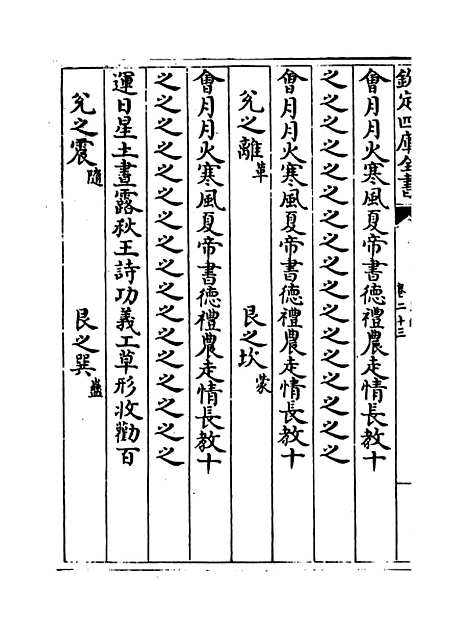 欽定四庫全書
卷二十三
會月月火寒風夏帝書德禮農走情長教十
之之之之之之之之之之之之之之之之之
會月月火寒風夏帝書德禮農走情長教十
兌之離革 艮之坎蒙
會月月火寒風夏帝書德禮農走情長教十
之之之之之之之之之之之之之之之之之
運日星土晝露秋王詩功義工草形收勸百
兌之震隨 艮之巽蠱